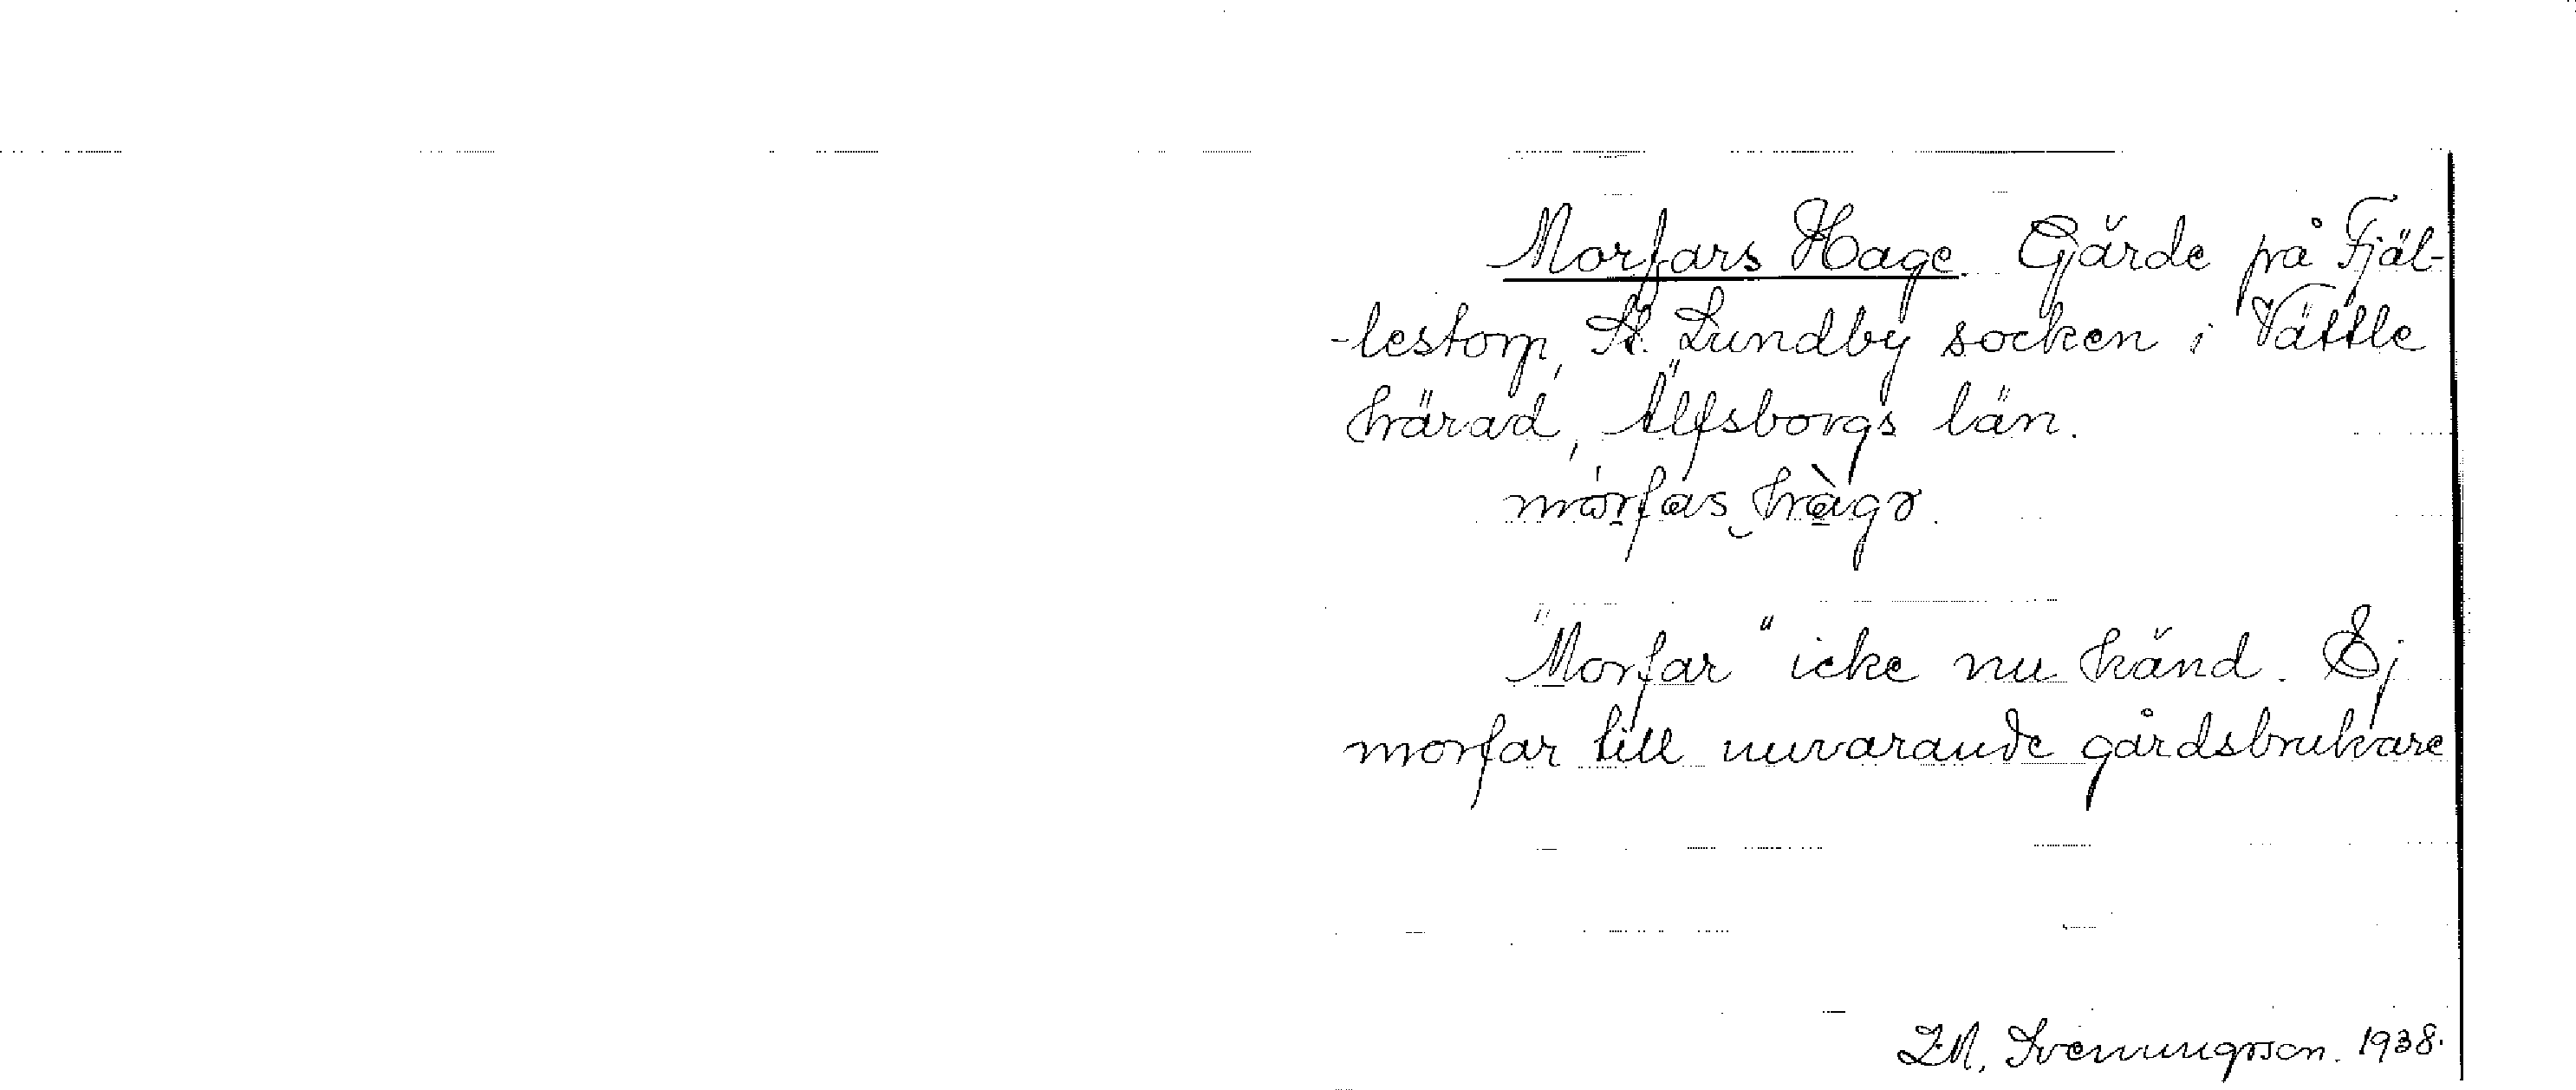 Morfars Hage. Gärde på Fjäl-
-lestorp, St. Lundby socken i Vättle
härad, Älfsborgs län.
mórfas hàgɔ.
"Morfar" icke nu känd. Ej
morfar till nuvarande gårdsbrukare
Svenungsson. 1938.